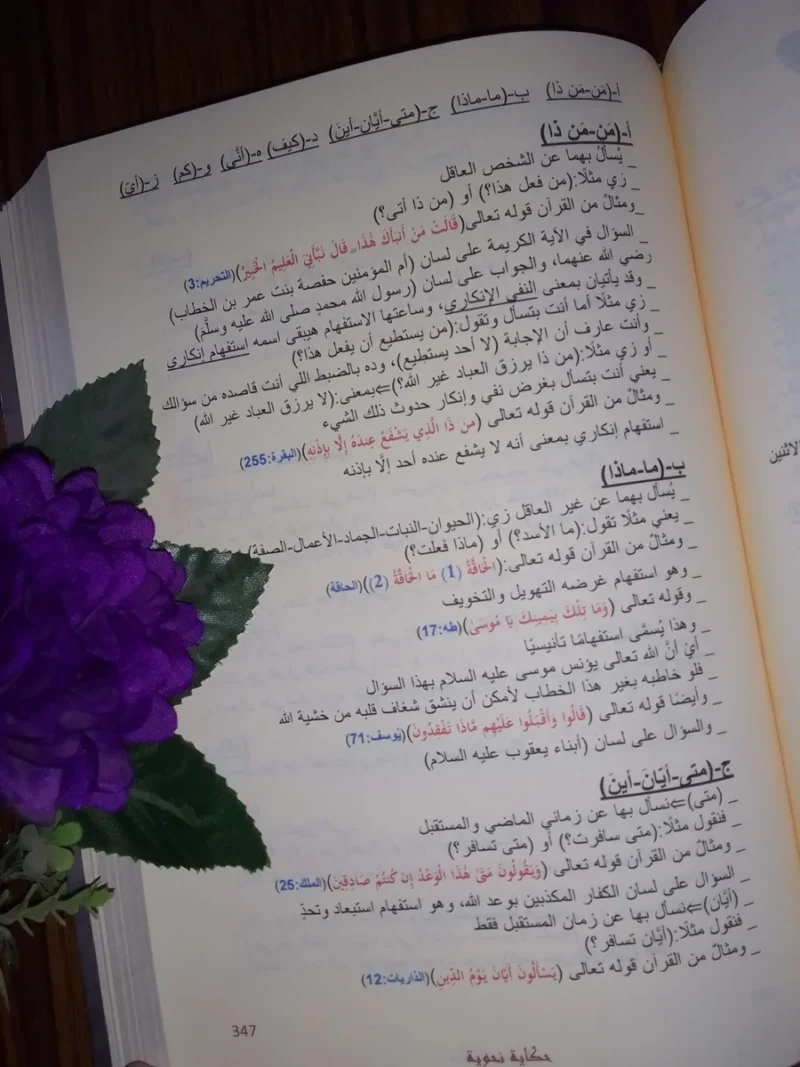 أ-(مَن-مَن ذا) ب-(ما-ماذا) ج-(متى-أيَّان-أينَ) د-(كيف) ه-(أنَّى) و-(كم) ز-(أيّ)
أ-(مَن-مَن ذا)
_ يُسألُ بهما عن الشخص العاقل
_ زي مثلًا:(من فعل هذا؟) أو (من ذا أتى؟)
_ومثالٌ من القرآن قوله تعالى(قَالَتْ مَنْ أَنبَأَكَ هَٰذَا ۖ قَالَ نَبَّأَنِيَ الْعَلِيمُ الْخَبِيرُ)(التحريم:3)
_ السؤال في الآية الكريمة على لسان (أم المؤمنين حفصة بنت عمر بن الخطاب)
رضي الله عنهما، والجواب على لسان (رسول الله محمدٍ صلى الله عليه وسلَّمَ)
_ وقد يأتيان بمعنى النفي الإنكاري، وساعتها الاستفهام هيبقى اسمه استفهام إنكاري
_ زي مثلًا أما أنت بتسأل وتقول:(من يستطيع أن يفعل هذا؟)
_ وأنت عارف أن الإجابة (لا أحد يستطيع)، وده بالضبط اللي أنت قاصده من سؤالك
_ أو زي مثلًا:(من ذا يرزق العباد غير الله؟)⇐بمعنى:(لا يرزق العباد غير الله)
_ يعني أنت بتسأل بغرض نفي وإنكار حدوث ذلك الشيء
_ ومثالٌ من القرآن قوله تعالى (من ذَا الَّذِي يَشْفَعُ عِندَهُ إِلَّا بِإِذْنِهِ)(البقرة:255)
_ استفهام إنكاري بمعنى أنه لا يشفع عنده أحد إلَّا بإذنه
ب-(ما-ماذا)
_ يُسأل بهما عن غير العاقل زي:(الحيوان-النبات-الجماد-الأعمال-الصفة)
_ يعني مثلًا تقول:(ما الأسد؟) أو (ماذا فعلت؟)
_ ومثالٌ من القرآن قوله تعالى:(الْحَاقَّةُ (1) مَا الْحَاقَّةُ (2))(الحاقة)
_ وهو استفهام غرضه التهويل والتخويف
_ وقوله تعالى (وَمَا تِلْكَ بِيَمِينِكَ يَا مُوسَىٰ)(طه:17)
_ وهذا يُسمَّى استفهامًا تأنيسيًا
_ أيْ أنَّ الله تعالى يؤنس موسى عليه السلام بهذا السؤال
_ فلو خاطبه بغير هذا الخطاب لأمكن أن ينشق شغاف قلبه من خشية الله
_ وأيضًا قوله تعالى (قَالُوا وَأَقْبَلُوا عَلَيْهِم مَّاذَا تَفْقِدُونَ)(يُوسف:71)
_ والسؤال على لسان (أبناء يعقوب عليه السلام)
ج-(متى-أيَّانَ-أينَ)
_ (متى)⇐نسأل بها عن زماني الماضي والمستقبل
_ فنقول مثلًا:(متى سافرت؟) أو (متى تسافر؟)
_ ومثالٌ من القرآن قوله تعالى (وَيَقُولُونَ مَتَىٰ هَٰذَا الْوَعْدُ إِن كُنتُمْ صَادِقِينَ)(الملك:25)
_ السؤال على لسان الكفار المكذبين بوعد الله، وهو استفهام استبعاد وتحدٍّ
_ (أيَّان)⇐نسأل بها عن زمان المستقبل فقط
_ فنقول مثلًا:(أيَّان تسافر؟)
_ ومثالٌ من القرآن قوله تعالى (يَسْأَلُونَ أَيَّانَ يَوْمُ الدِّينِ)(الذاريات:12)
347
حكاية نحوية
الاثنين